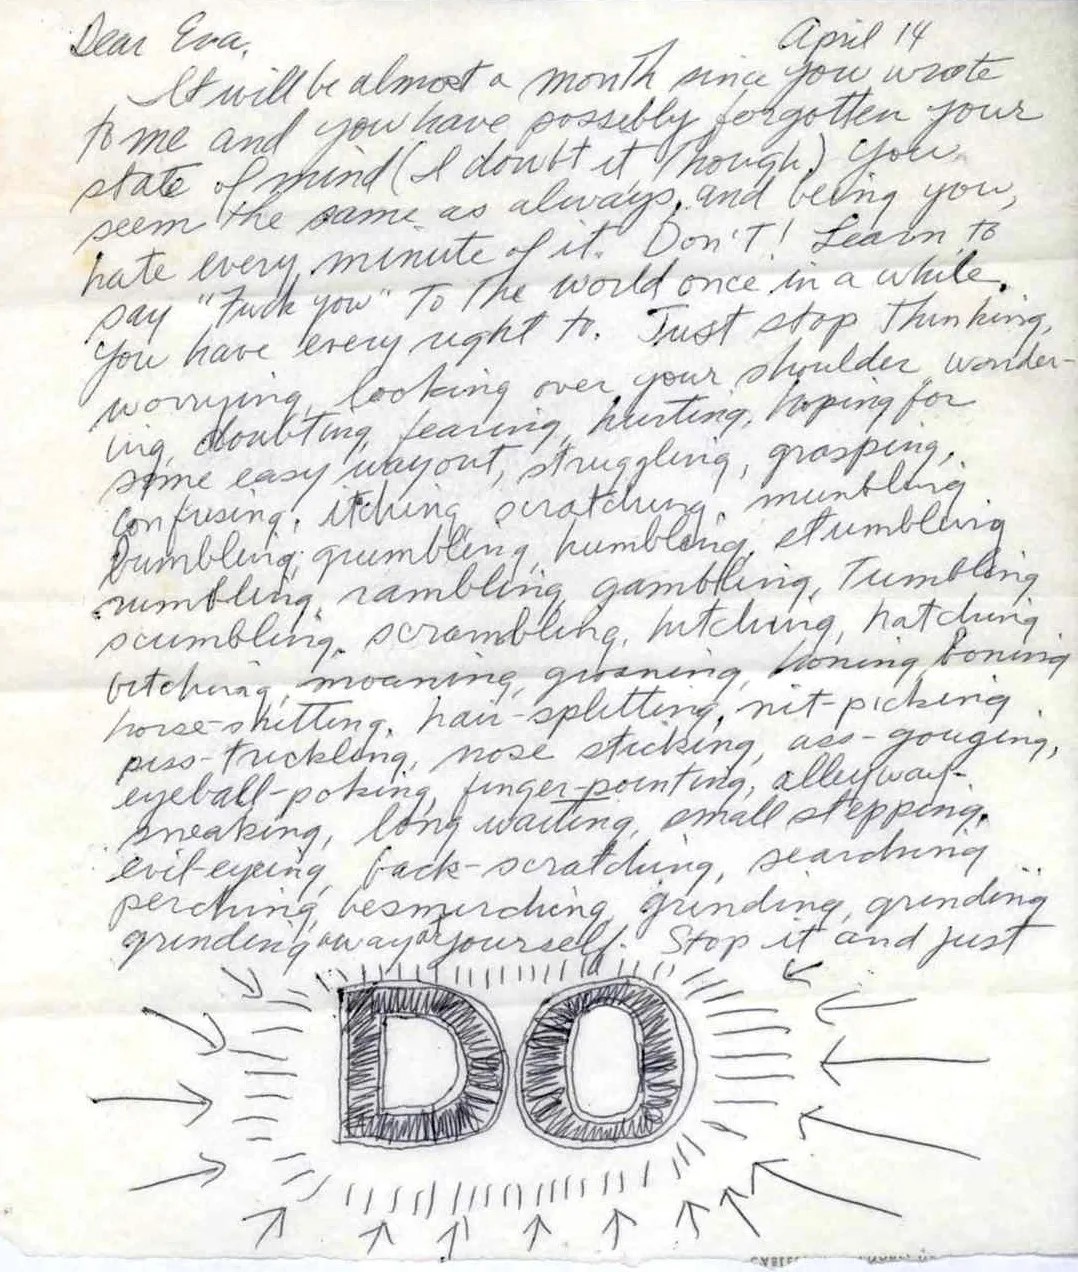 Dear Eva, April 14
It will be almost a month since you wrote
to me and you have possibly forgotten your
state of mind (I doubt it though) You
seem the same as always, and being you,
hate every minute of it. Don't! Learn to
say "Fuck you" to the world once in a while.
You have every right to. Just stop thinking,
worrying, looking over your shoulder, wonder-
ing, doubting, fearing, hurting, hoping for
some easy way out, struggling, grasping,
confusing, itching, scratching, mumbling
bumbling, grumbling, humbling, stumbling
rumbling, rambling, gambling, Tumbling
scumbling, scrambling, hitching, hatching
bitching, moaning, groaning, honing boning
horse-shitting, hair-splitting, nit-picking
piss-trickling, nose sticking, ass-gouging,
eyeball-poking, finger-pointing, alleyway-
sneaking, long waiting, small stepping,
evil-eyeing, back-scratching, searching
perching, besmirching, grinding, grinding
grinding away at yourself. Stop it and just
DO